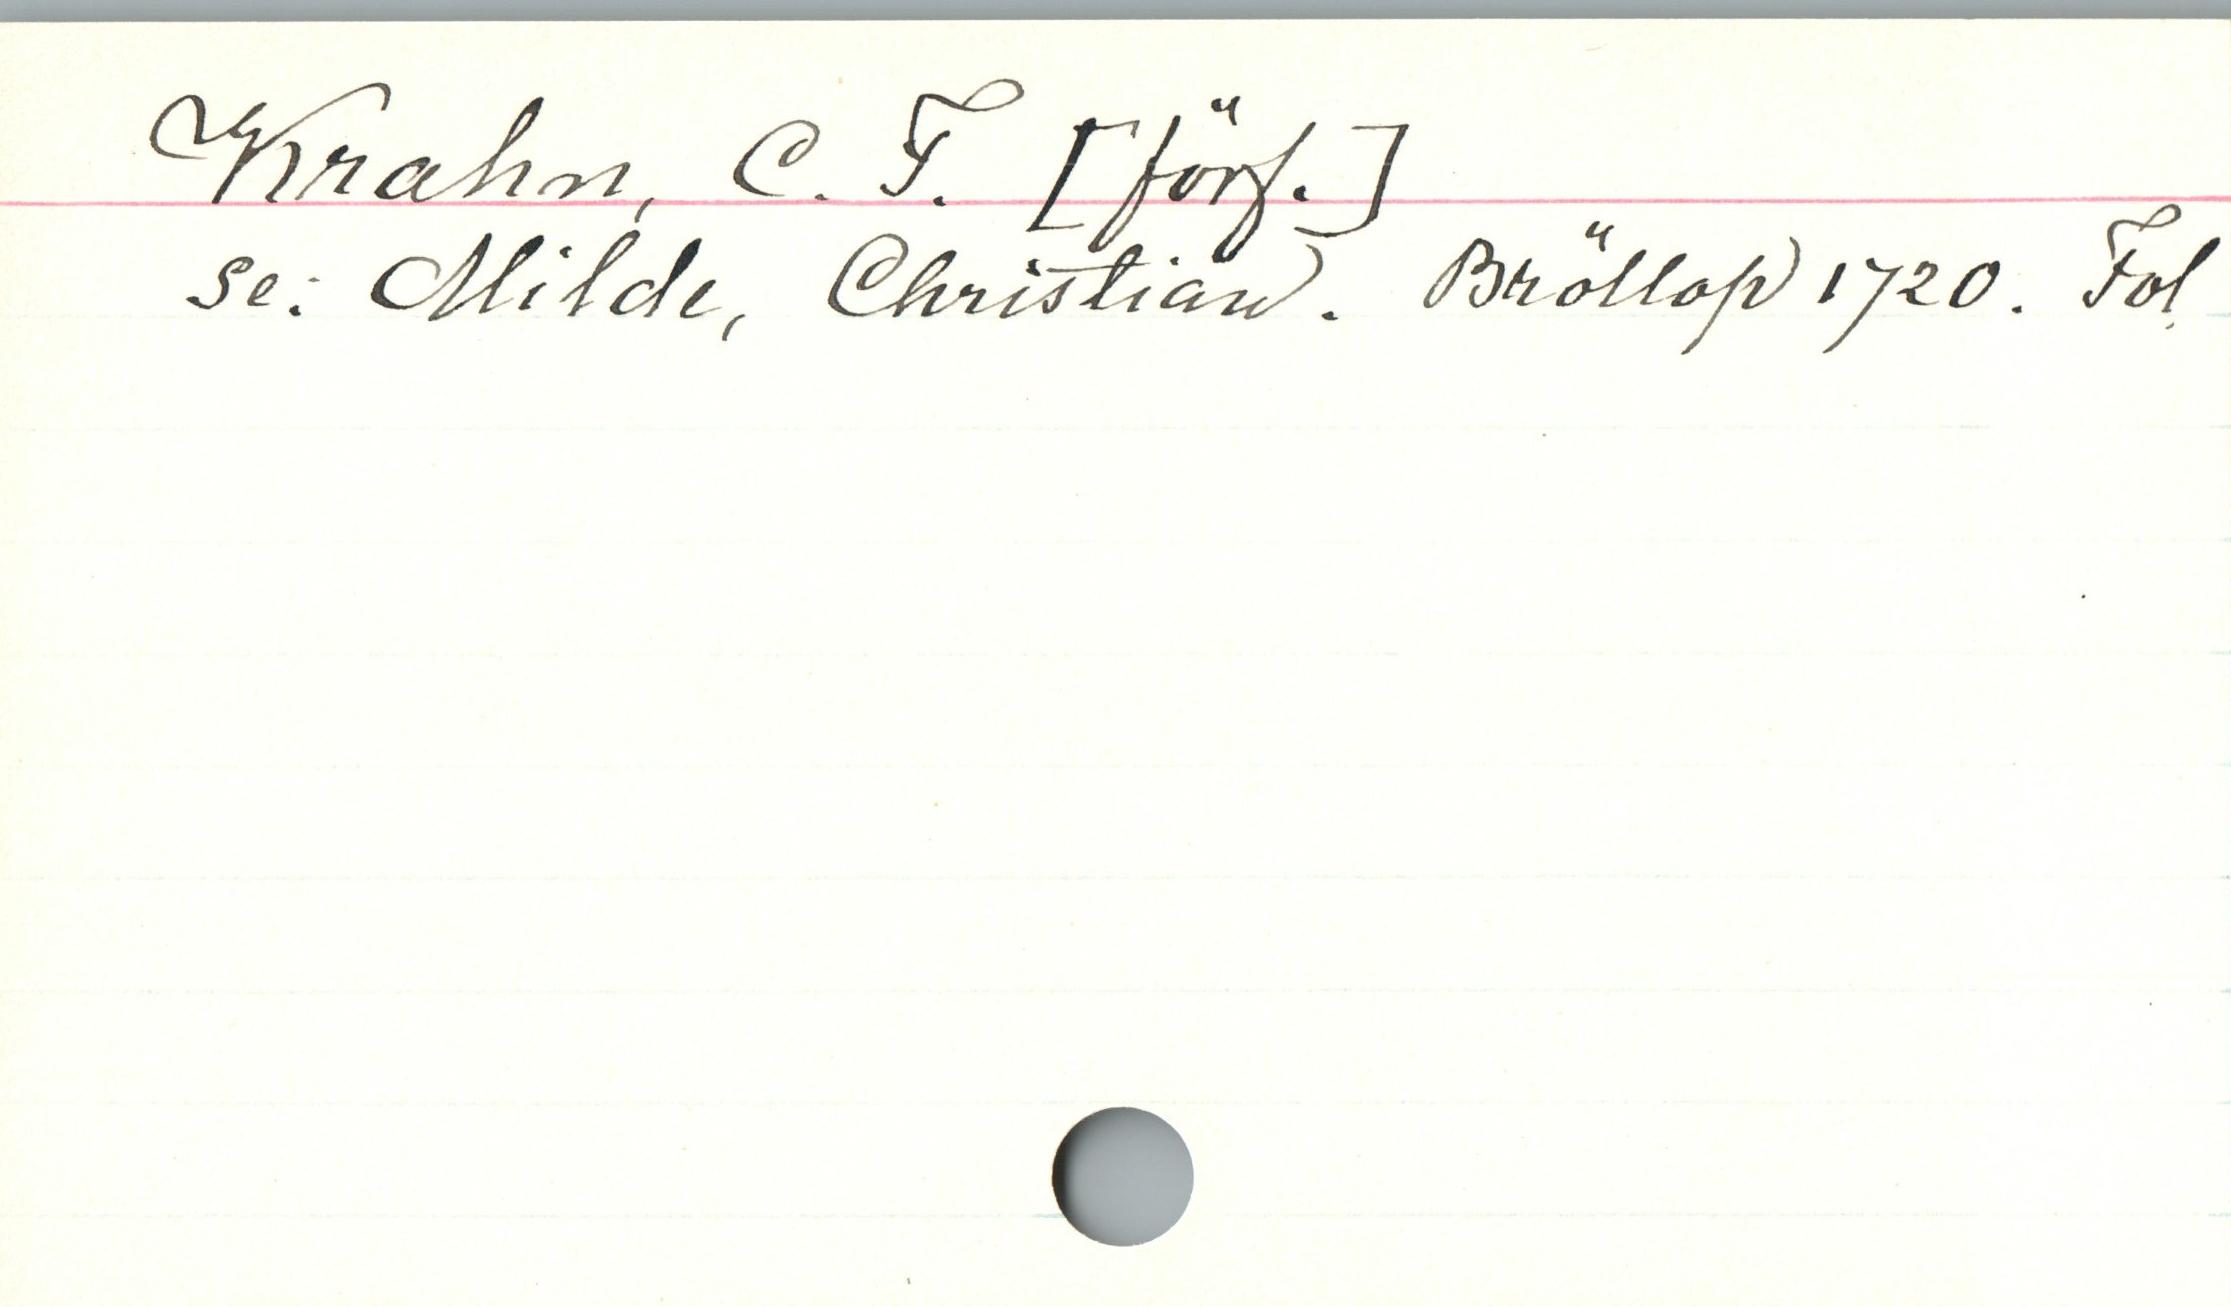 Krahn, C. F. [förf.]
se: Milde, Christian. Bröllop 1720. Fol.